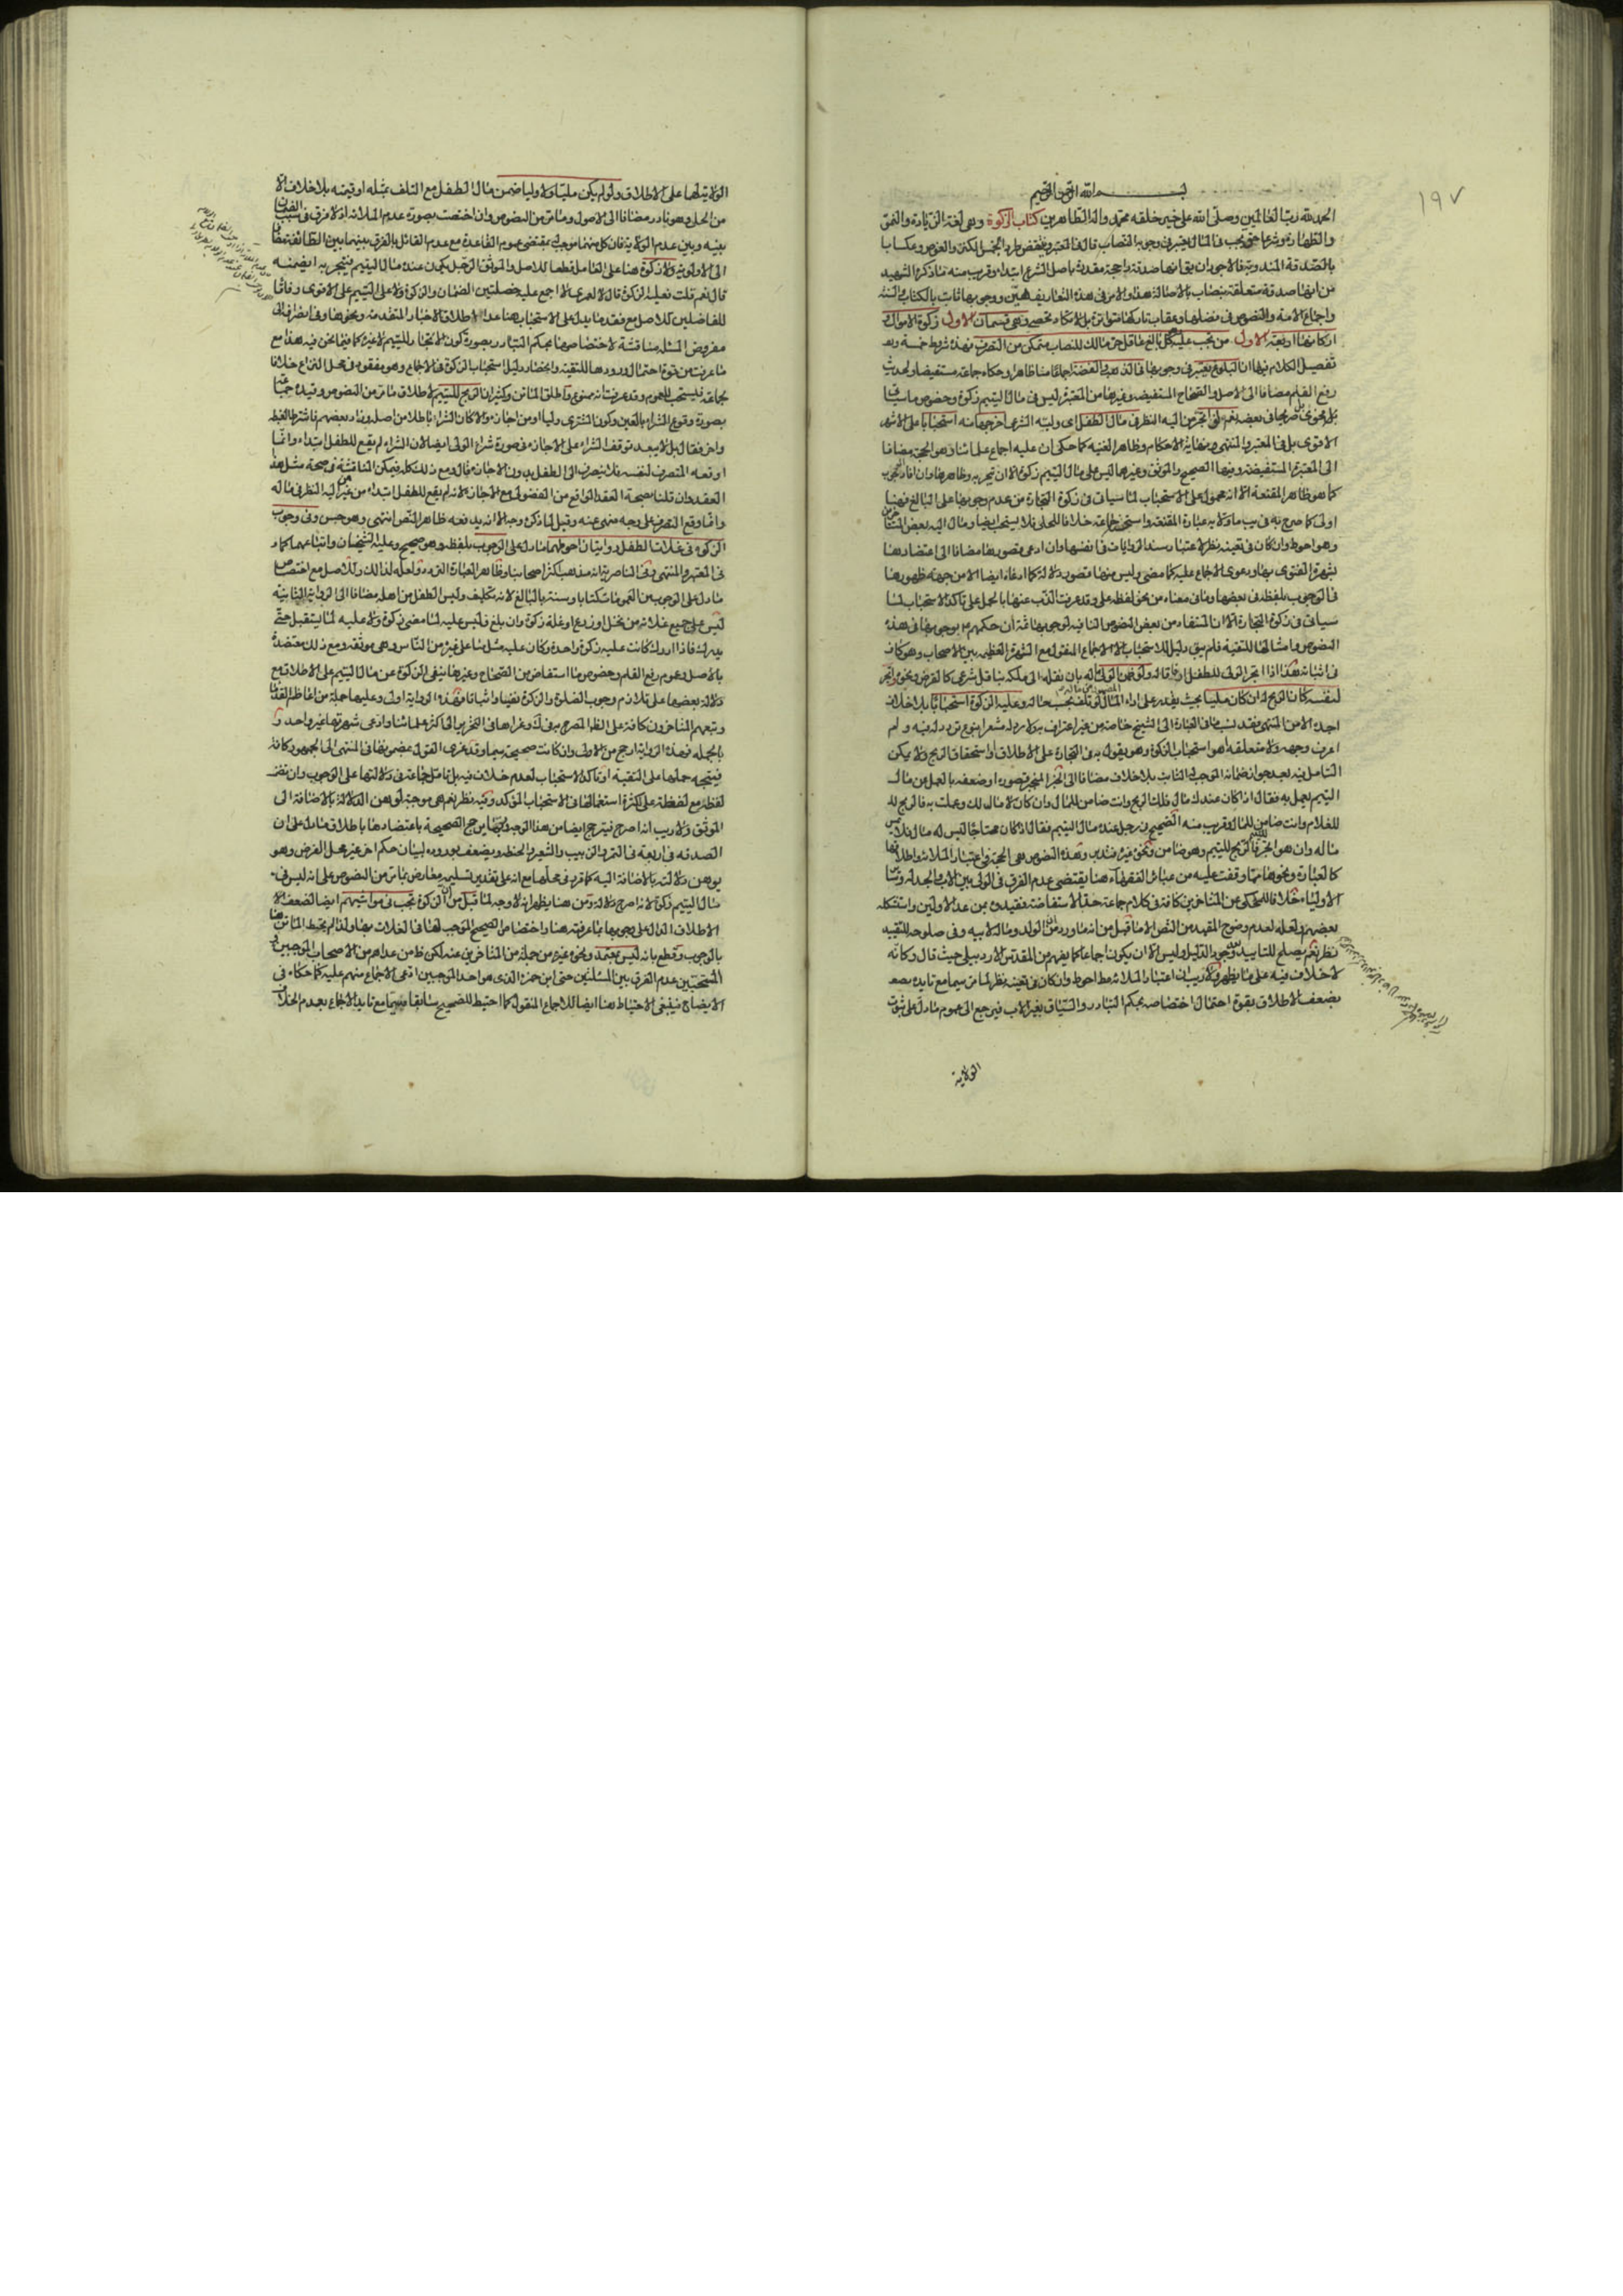 ١٩٧
بسم الله الرحمن الرحيم
الحمد لله رب العالمين وصلى الله على خير خلقه محمد واله الطاهرين كتاب الزكوة وهى لغة الزيادة والنمو
والطهارة وشرعا حق يجب فى المال يعتبر فى وجوبه النصاب قال فى المعتبر ونقض طردا بالخمس فى الكنز والغوص وعكسا با
بالصدقة المندوبة فالاجود ان يقال انها صدقة راجحة مقدرة باصل الشرع ابتداء وقريب منه ما ذكره الشهيد
من انها صدقة متعلقة بنصاب بالاصالة هذا والامر فى هذه التعاريف هين ووجوبها ثابت بالكتاب والسنة
واجماع الامة والنصوص فى فضلها وعقاب تاركها متواترة بل لا تكاد تحصى وهى قسمان الاول زكوة الاموال و
اركانها اربعة الاول من تجب عليه كل بالغ عاقل حر مالك للنصاب متمكن من التصرف فهذه شروط خمسة و
تفصيل الكلام فيها ان البلوغ يعتبر فى وجوبها فى الذهب والفضة اجماعا منا ظاهرا وحكاه جماعة مستفيضا ولحديث
رفع القلم مضافا الى الاصل والصحاح المستفيضة وغيرها من المعتبرة ليس فى مال اليتيم زكوة وخصوص ما سياتى
نعم لو اتجر من اليه النظر فى مال الطفل اى وليه الشرعى اخرجها منه استحبابا على الاشهر
الاقوى بل فى المعتبر والمنتهى ونهاية الاحكام وظاهر الغنية كما حكى ان عليه اجماع علمائنا وهو الحجة مضافا
الى المعتبرة المستفيضة وفيها الصحيح والموثق وغيرهما ليس على مال اليتيم زكوة الا ان يتجر به وظاهرها وان افاد الوجوب
كما هو ظاهر المقنعة الا انه محمول على الاستحباب لما سياتى فى زكوة التجارة من عدم وجوبها على البالغ فهنا
اولى كما صرح به فى يب ماولا به عبارة المقنعة واستحسنه جماعة خلافا للحلى فلا يستحب ايضا ومال اليه بعض المتاخرين
وهو احوط وان كان فى تعينه نظر لاعتبار سند الروايات فى انفسها وان ادعى قصورها مضافا الى اعتضادها
بشهرة الفتوى بها ودعوى الاجماع عليه كما مضى وليس فيها قصور دلالة كما ادعاه ايضا الا من جهة ظهورها
فى الوجوب بلفظه فى بعضها وما فى معناه من نحو لفظة على وقد عرفت الذب عنها بالحمل على تاكد الاستحباب لما
سياتى فى زكوة التجارة الا ان المستفاد من بعض النصوص النافية لوجوبها ثمة ان حكمهم ع بوجوبها فى هذه
النصوص وامثالها للتقية فلم يبق دليل للاستحباب الا الاجماع المنقول مع الشهرة العظيمة بين الاصحاب وهو كاف
فى اثباته هذا اذا اتجر الولى للطفل وقاله ولو ضمن الولى ماله بان نقله الى ملكه بناقل شرعى كالقرض ونحوه واتجر
لنفسه كان الربح له ان كان مليا بحيث يقدر على اداء المال لو تلف بحسب حاله وعليه الزكوة استحبابا بلا خلاف
اجده الا من المنتهى
اعرف وجهه ولا متعلقه اهو استحباب الزكوة وهو يقول به فى التجارة على الاطلاق او استحقاق الربح ولا يمكن
التامل فيه بعد جواز ضمانه الموجب له الثابت بلا خلاف مضافا الى الخبر المنجبر قصوره او ضعفه بالعمل من مال
اليتيم يعمل به فقال اذا كان عندك مال فلك الربح وانت ضامن للمال وان كان لا مال لك وعملت به فالربح لله
للغلام وانت ضامن للمال وقريب منه الصحيح فى رجل عنده مال اليتيم فقال اذا كان محتاجا ليس له مال فلا يمس
ماله وان هو اتجر فالربح لليتيم وهو ضامن ونحوه غيره وهذه النصوص هى الحجة فى اعتبار الملائة واطلاقها
كالعبارة ونحوها مما وقفت عليه من عبائر الفقهاء هنا يقتضى عدم الفرق فى الولى بين الاب والجد له وسائر
الاولياء خلافا للمحكى عن المتاخرين كافة فى كلام جماعة حد الاستفاضة فقيدوه بمن عدا الاولين واستشكله
بعضهم ولعله لعدم وضوح المقيد من النص الا ما قيل من انه ما ورد من ان الولد وماله لابيه وفى صلوحه للتقييد
نظر نعم يصلح للتاييد سيما والدليل وليس الا ان يكون اجماعا كما يفهم من المقدس الاردبيلى حيث قال وكانه
لا خلاف فيه على ما يظهر ولا ريب ان اعتبار الملائة مط احوط وان كان فى تعينه نظر لما مر سيما مع تايده بضعف
بضعف الاطلاق بقوة احتمال اختصاصه بحكم التبادر والسياق بغير الاب فيرجع الى عموم ما دل على ثبوت
الولاية
الولاية لهما على الاطلاق ولو لم يكن مليا ولا وليا ضمن مال الطفل مع التلف بمثله او قيمته بلا خلاف الا
من الحلى وهو نادر مضافا الى الاصول وما مر من النصوص وان اختصت بصورة عدم الملائة اذ لا فرق فى سبب الضمان
بينه وبين عدم الولاية فان كلا منهما موجب بمقتضى عموم القاعدة مع عدم القائل بالفرق بينهما بين الطائفة مضافا
الى الاولوية ولا زكوة هنا على العامل قطعا للاصل والموثق الرجل يكون عنده مال اليتيم فيتجر به ايضمنه
قال نعم قلت فعليه الزكوة قال لا لعمرى لا اجمع عليه خصلتين الضمان والزكوة ولا على اليتيم على الاقوى وفاقا
للفاضلين للاصل مع فقد ما يدل على الاستحباب هنا عدا اطلاق الاخبار المتقدمة ونحوها وفى انصرافه الى
مفروض المسئلة مناقشة لاختصاصها بحكم التبادر بصورة كون الاتجار لليتيم لا غيره كما فيما نحن فيه هذا مع
ما عرفت من قوة احتمال ورودها للتقية وانحصار دليل استحباب الزكوة فى الاجماع وهو مفقود فى محل النزاع خلافا
لجماعة فليستحب للعموم وقد عرفت انه ممنوع واطلق الماتن وكثير ان الربح لليتيم لاطلاق ما مر من النصوص وقيده جماعة
بصورة وقوع الشراء بالعين وكون المشترى وليا او من اجازه والا كان الشراء باطلا من اصله وزاد بعضهم فاشترط الغبطة
واخر فقال بل لا يبعد توقف الشراء على الاجازة فى صورة شراء الولى ايضا لان الشراء لم يقع للطفل ابتداء وانما
اوقعه المتصرف لنفسه فلا ينصرف الى الطفل بدون الاجازة قال ومع ذلك كله فيمكن المناقشة فى صحة مثل هذا
العقد وان قلنا بصحة العقد الواقع من الفضولى مع الاجازة لانه لم يقع للطفل ابتداء من غير اليه النظر فى ماله
وانما وقع التصرف على وجه منهى عنه وقيل لما ذكره وجه الا انه يدفعه ظاهر النص انتهى وهو حسن وفى وجوب
الزكوة فى غلات الطفل روايتان احوطهما ما دل على الوجوب بلفظه وهو صحيح وعليه الشيخان واتباعهما كما
فى المعتبر والمنتهى وفى الناصرية انه مذهب اكثر اصحابنا وظاهر العبارة التردد ولعله لذلك وللاصل مع اختصاص
ما دل على الوجوب من العمومات كتابا وسنة بالبالغ لانه تكليف وليس الطفل من اهله مضافا الى الرواية الثانية
ليس على جميع غلاته من نخل او زرع او غلة زكوة وان بلغ فليس عليه لما مضى زكوة ولا عليه لما يستقبل حتى
يدرك فاذا ادرك كانت عليه زكوة واحدة وكان عليه مثل ما على غيره من الناس وهى موثقة ومع ذلك معتضدة
بالاصل وعموم رفع القلم وخصوص ما استفاض من الصحاح وغيرها بنفى الزكوة عن مال اليتيم على الاطلاق مع
دلالة بعضها على تلازم وجوب الصلوة والزكوة نفيا واثباتا وهذه الرواية اولى وعليها جملة من اعاظم القدماء
وتبعهم المتاخرون كافة على الظاهر المصرح به فى ك وعزاها فى التحرير الى اكثر علمائنا وادعى شهرتها غير واحد و
بالجملة فهذه الرواية ارجح من الاولى وان كانت صحيحة سيما وقد عزى القول بمضمونها فى المنتهى الى الجمهور كافة
فيتجه حملها على التقية او تاكد الاستحباب لعدم خلاف فيه بل تامل جماعة فى دلالتها على الوجوب وان تضمن
لفظه مع لفظة على لكثرة استعمالهما فى الاستحباب المؤكد وفيه نظر نعم هى موجبة لوهن الدلالة بالاضافة الى
الموثق ولا ريب انه اصرح فيترجح ايضا من هذا الوجه وربما يرجح الصحيحة باعتضادها باطلاق ما دل على ان
الصدقة فى اربعة فى التمر والزبيب والشعير والحنطة ويضعف بوروده لبيان حكم اخر غير محل الفرض وهو
يوهن دلالته بالاضافة اليه كما قرر فى محله مع انه على تقدير تسليمه معارض بما مر من النصوص على انه ليس فى
مال اليتيم زكوة لانه اصرح دلالة ومن هنا يظهر انه لا وجه لما قيل من ان الزكوة تجب فى مواشيهم ايضا لضعف الا
الاطلاق الدال على وجوبها بما عرفته هنا واختصاص الصحيح الموجب لها فى الغلات بها ولذا لم يحتط الماتن هنا
بالوجوب وقطع بانه ليس بمعتمد ونحوه غيره من جملة من المتاخرين عنه لكن ظ من عداهم من الاصحاب الموجبين و
المستحبين عدم الفرق بين المسئلتين حتى ابن حمزة الذى هو احد الموجبين ادعى الاجماع منهم عليه كما حكاه فى
الايضاح فينبغى الاحتياط هنا ايضا للاجماع المنقول كما احتيط للصحيح سابقا سيما مع تايد الاجماع بعدم الخلاف